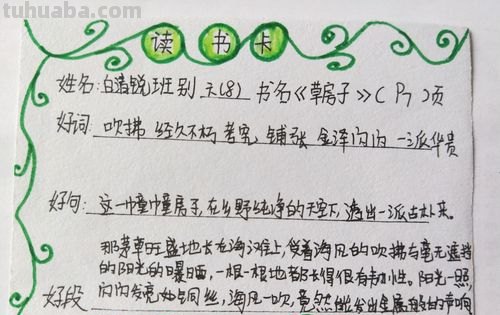 tuhuaba.com
读书卡
姓名:白清锐 班别 六(8) 书名《草房子》( P7 )页
好词: 吹拂 经久不朽 考究 铺张 金泽闪闪 一派华贵
好句: 这一幢幢房子,在乡野纯净的天空下,透出一派古朴来。
那茅草旺盛地长在海滩上,受着海风的吹拂与毫无遮挡
的阳光的曝晒,一根一根地都长得很有韧性。阳光一照,
好段 闪闪发亮如同铜丝,海风一吹,竟然能发出金属般的声响